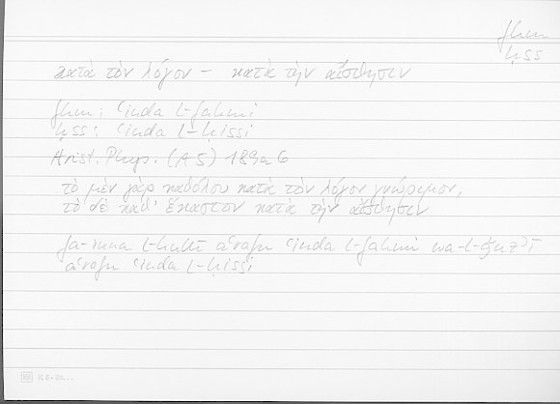 fhm
ḥss
κατὰ τὸν λόγον – κατὰ τὴν αἴσθησιν
fhm: ʿinda l-fahmi
ḥss: ʿinda l-ḥissi
Arist. Phys. (A 5) 189a6
τὸ μὲν γὰρ καθόλου κατὰ τὸν λόγον γνώριμον,
τὸ δὲ καθ' ἕκαστον κατὰ τὴν αἴσθησιν
fa-inna l-kullī aʿrafu ʿinda l-fahmi wa-l-ǧuzʾī
aʿrafu ʿinda l-ḥissi